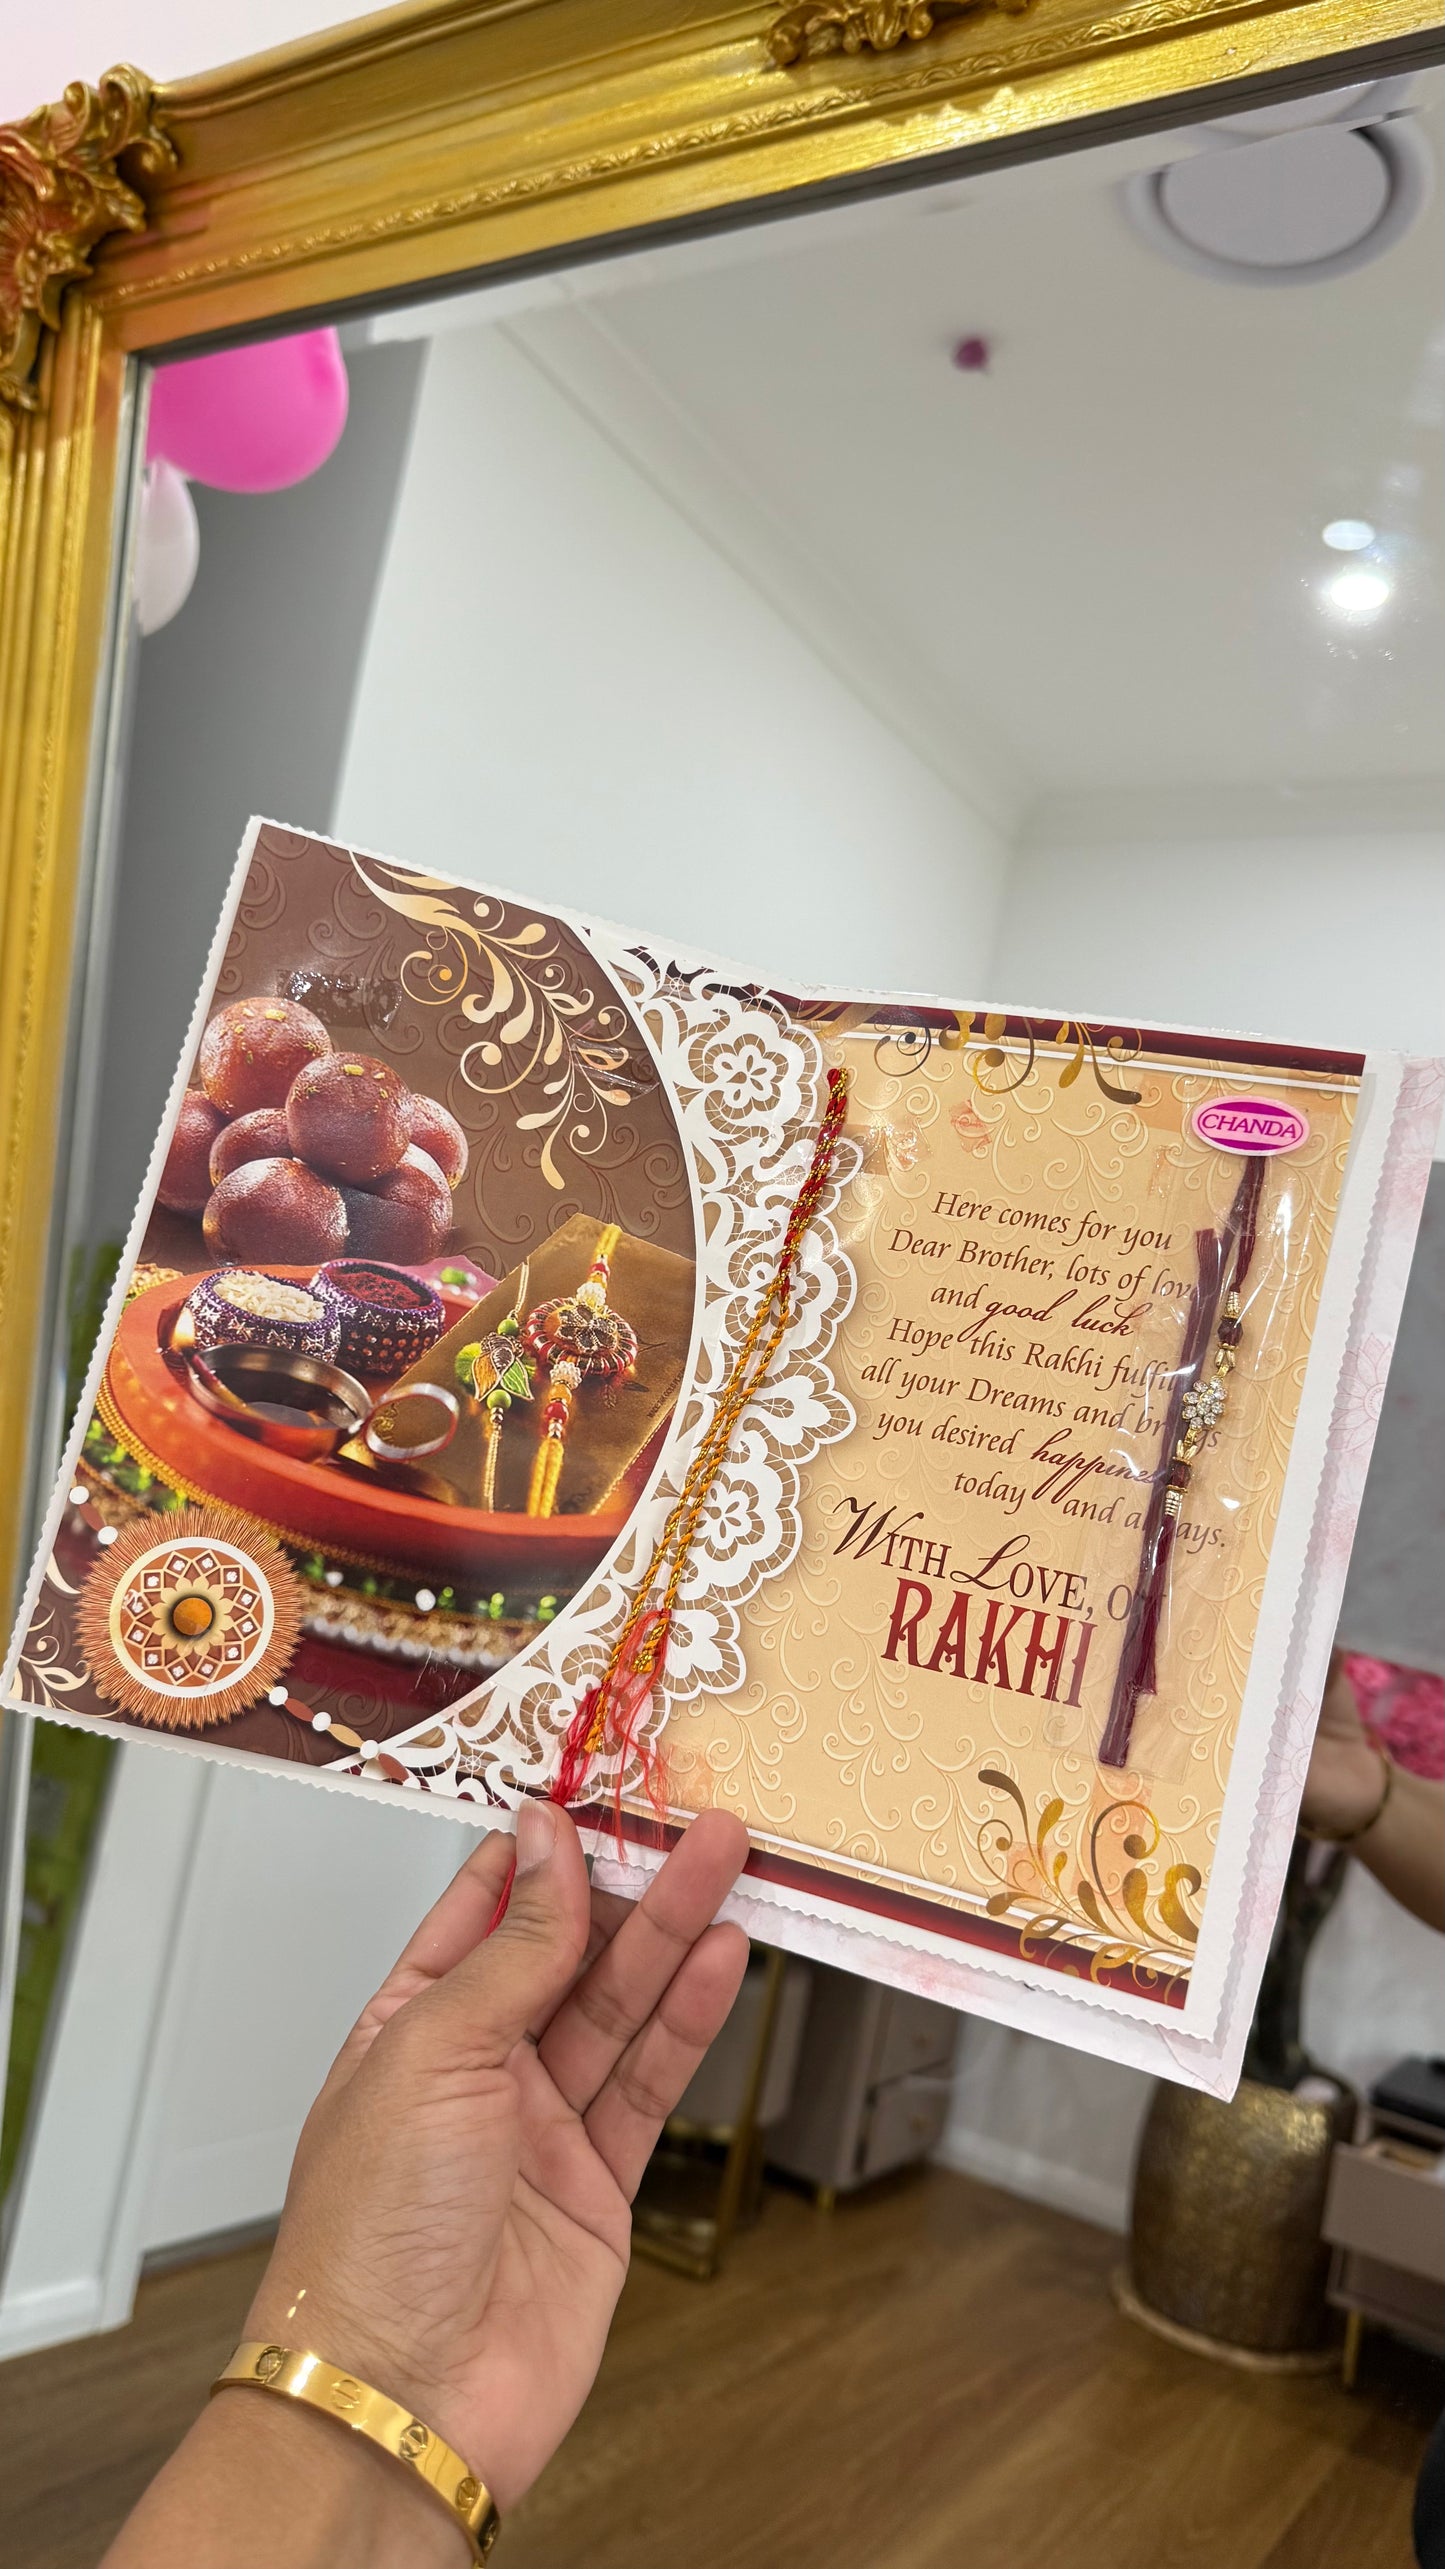 CHANDA
Here comes for you
Dear Brother, lots of love
and good luck
Hope this Rakhi fulfil
all your Dreams and brings
you desired happiness
today and always.
WITH LOVE, ON
RAKHI